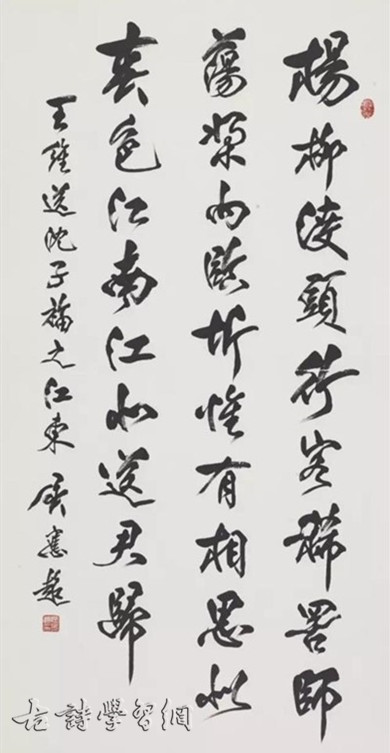 楊柳渡頭行客稀罟師
蕩槳向臨圻惟有相思似
春色江南江北送君歸
王維送沈子福之江東 屈應超
古詩學習網